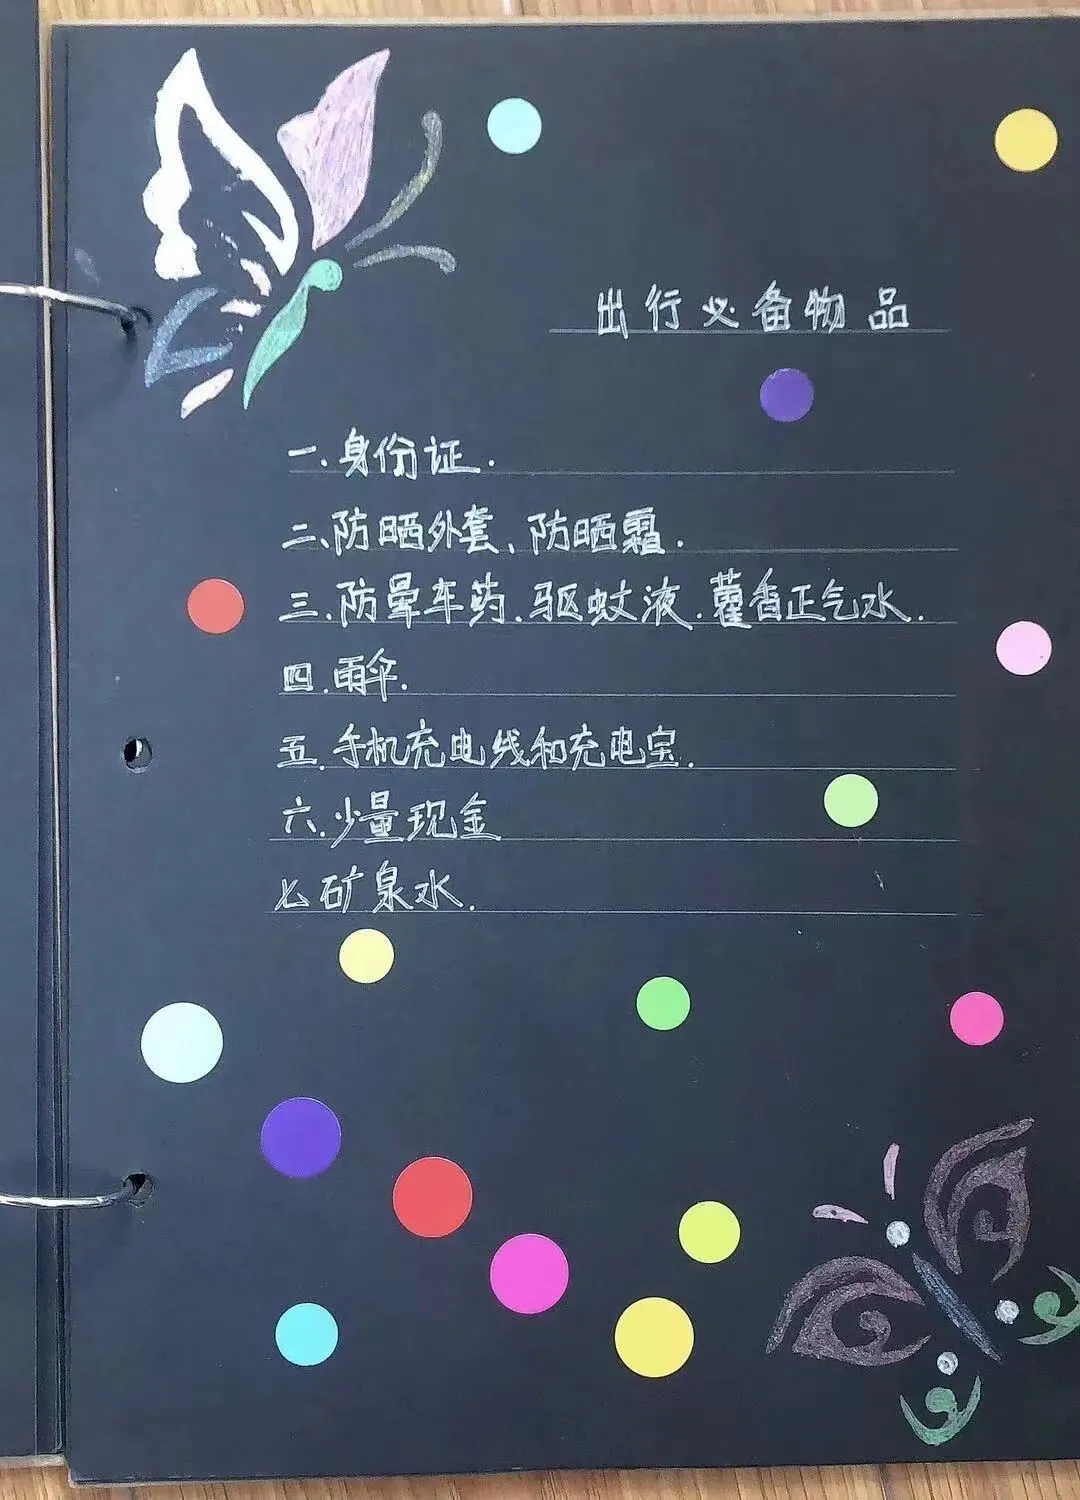 出行必备物品
一、身份证.
二、防晒外套、防晒霜.
三.防晕车药.驱蚊液.藿香正气水.
四.雨伞.
五.手机充电线和充电宝.
六.少量现金
七矿泉水.